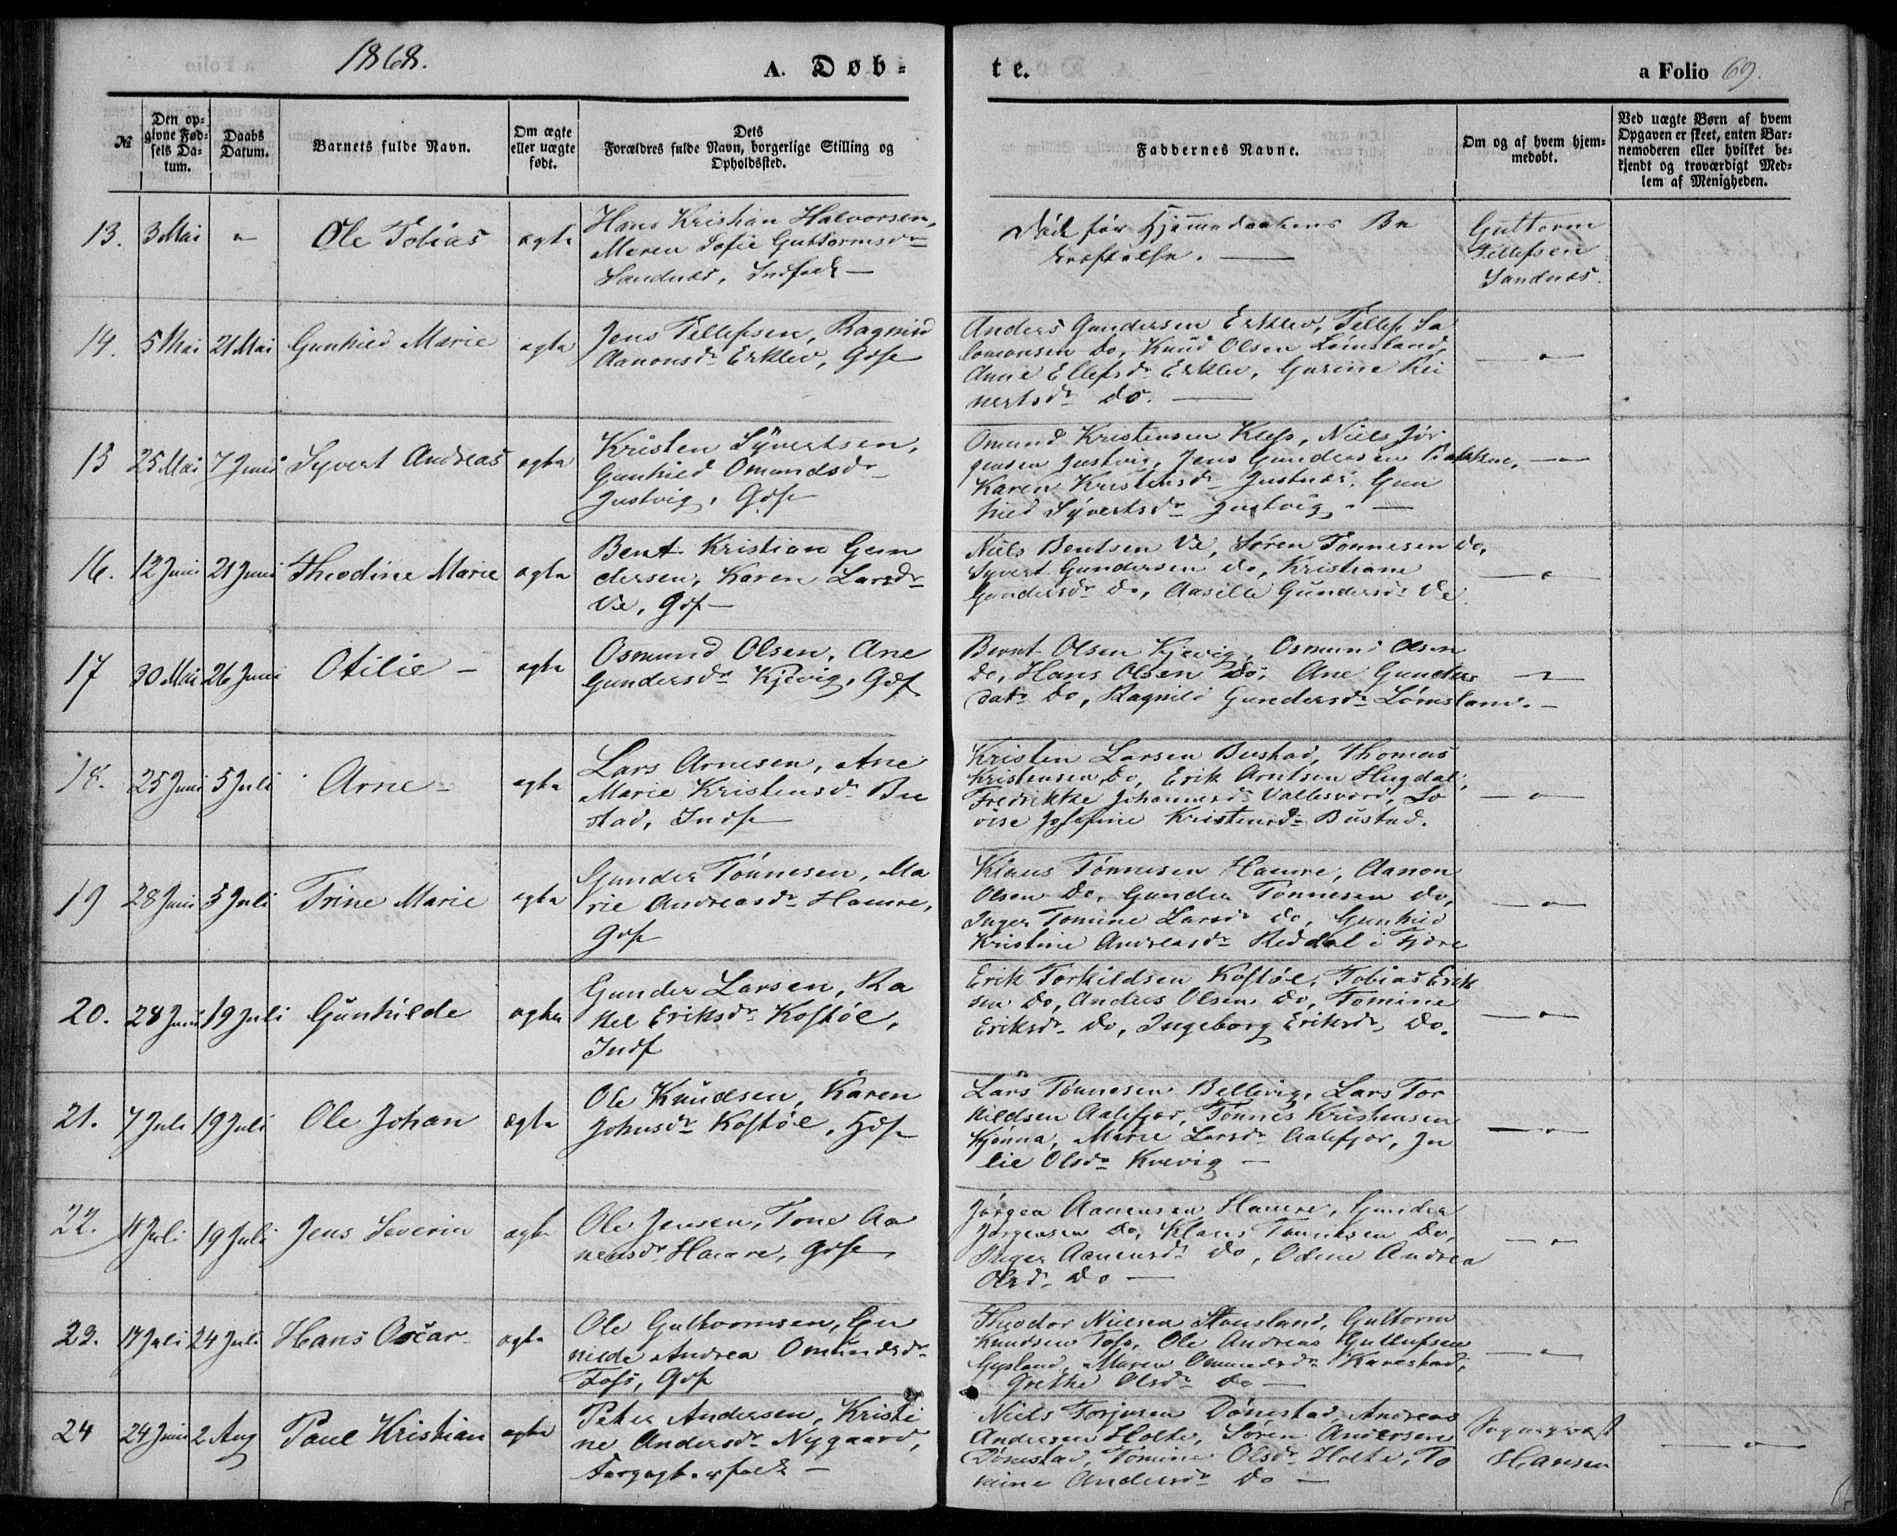 1868.
A. Døb-
te.
a Folio 69.
№
Den opgivne Fødsels Datum.
Daabs Datum.
Barnets fulde Navn.
Om ægte eller uægte født.
Dets Forældres fulde Navn, borgerlige Stilling og Opholdssted.
Faddernes Navne.
Om og af hvem hjemmedøbt.
Ved uægte Børn af hvem Opgaven er skeet, enten Barnemoderen eller hvilket bekjendt og troværdigt Medlem af Menigheden.
13. 3 Mai " Ole Tobias ægte
Hans Kristian Halvorsen,
Maren Sofie Guttormsdr
Sandnæs, Indfolk —
Død før Hjemmedaabens Be
kræftelse. —
Guttorm
Tellefsen
Sandnæs.
14. 5 Mai 21 Mai Gunhild Marie ægte
Jens Tellefsen, Ragnild
Aanonsdr Erklev, Gdf
Anders Gundersen Erklev, Tellef Sa
lomonsen Do, Knud Olsen Lømsland,
Anne Ellefsdr Erklev, Gurine Rei
nertsdr Do. —
15 25 Mai 7 Juni Syvert Andreas ægte
Kristen Syvertsen,
Gunhild Omundsdr
Justvig, Gdf
Omund Kristensen Klef, Niels Jør
gensen Justvig, Jens Gundersen Bakken,
Karen Kristensdr Justnæs, Gun
hild Syvertsdr Justvig. —
16. 12 Juni 21 Juni Theodine Marie ægte
Bent Kristian Gun
dersen, Karen Larsdr
Ve, Gdf —
Niels Bentsen Ve, Søren Tønnesen Do,
Syvert Gundersen Do, Kristiane
Gundersdr Do, Aasille Gundersdr Ve
17 30 Mai 26 Juni Otilie — ægte
Osmund Olsen, Ane
Gundersdr Kjevig, Gdf
Bernt Olsen Kjevig, Osmund Olsen
Do, Hans Olsen Do, Ane Gunders
datr Do, Ragnild Gundersdr Lømsland. —
18. 25 Juni 5 Juli Arne — ægte
Lars Arnesen, Ane
Marie Kristensdr Bu
stad, Indf
Kristen Larsen Bustad, Thomas
Kristensen Do, Erik Arntsen Hugdal,
Fredrikke Johannesdr Vallesverd, Lo
vise Josefine Kristensdr Bustad.
19 28 Juni 5 Juli Trine Marie ægte
Gunder Tønnesen, Ma
rie Andreasdr Hamre,
Gdf
Klaus Tønnesen Hamre, Aanon
Olsen Do, Gunder Tønnesen Do,
Inger Tomine Larsdr Do, Gunhild
Kristine Andreasdr Reddal i Fjære
20. 28 Juni 19 Juli Gunhilde ægte
Gunder Larsen, Ra
kel Eriksdr Kostøl,
Indf
Erik Torkildsen Kostøl, Tobias Erik
sen Do, Anders Olsen Do, Tomine
Eriksdr Do, Ingeborg Eriksdr Do.
21. 7 Juli 19 Juli Ole Johan ægte
Ole Knudsen, Karen
Johnsdr Kostøl,
Lars Tønnesen Bellevig, Lars Tor
kildsen Aalefjær, Tønnes Kristensen
Marie Larsdr Aalefjær, Ju
lie Olsdr Kvevig —
22. 11 Juli 19 Juli Jens Severin ægte
Ole Jensen, Tone Aa
nensdr Hamre, Gdf
Jørgen Aanensen Hamre, Gunder
Jørgensen Do, Klaus Tønnesen Do,
Inger Aanensdr Do, Odine Andrea
Olsdr Do —
23. 17 Juli 24 Juli Hans Oscar ægte
Ole Guttormsen, Gu
nilde Andrea Omundsdr
Tofs, Gdf
Theodor Nielsen Stensland, Guttorm
Knudsen Tofs, Ole Andreas Gullufsen
Maren Omundsdr Kavestad,
Grethe Olsdr Do —
24 24 Juni 2 Aug Paul Kristian ægte
Peter Andersen, Kristi
ne Andersdr Nygaard,
Niels Torjusen Dønestad, Andreas
Andersen Holte, Søren Andersen
Dønestad, Tomine Olsdr Holte, To
mine Andersdr Do —
Sogneprest
Hansen